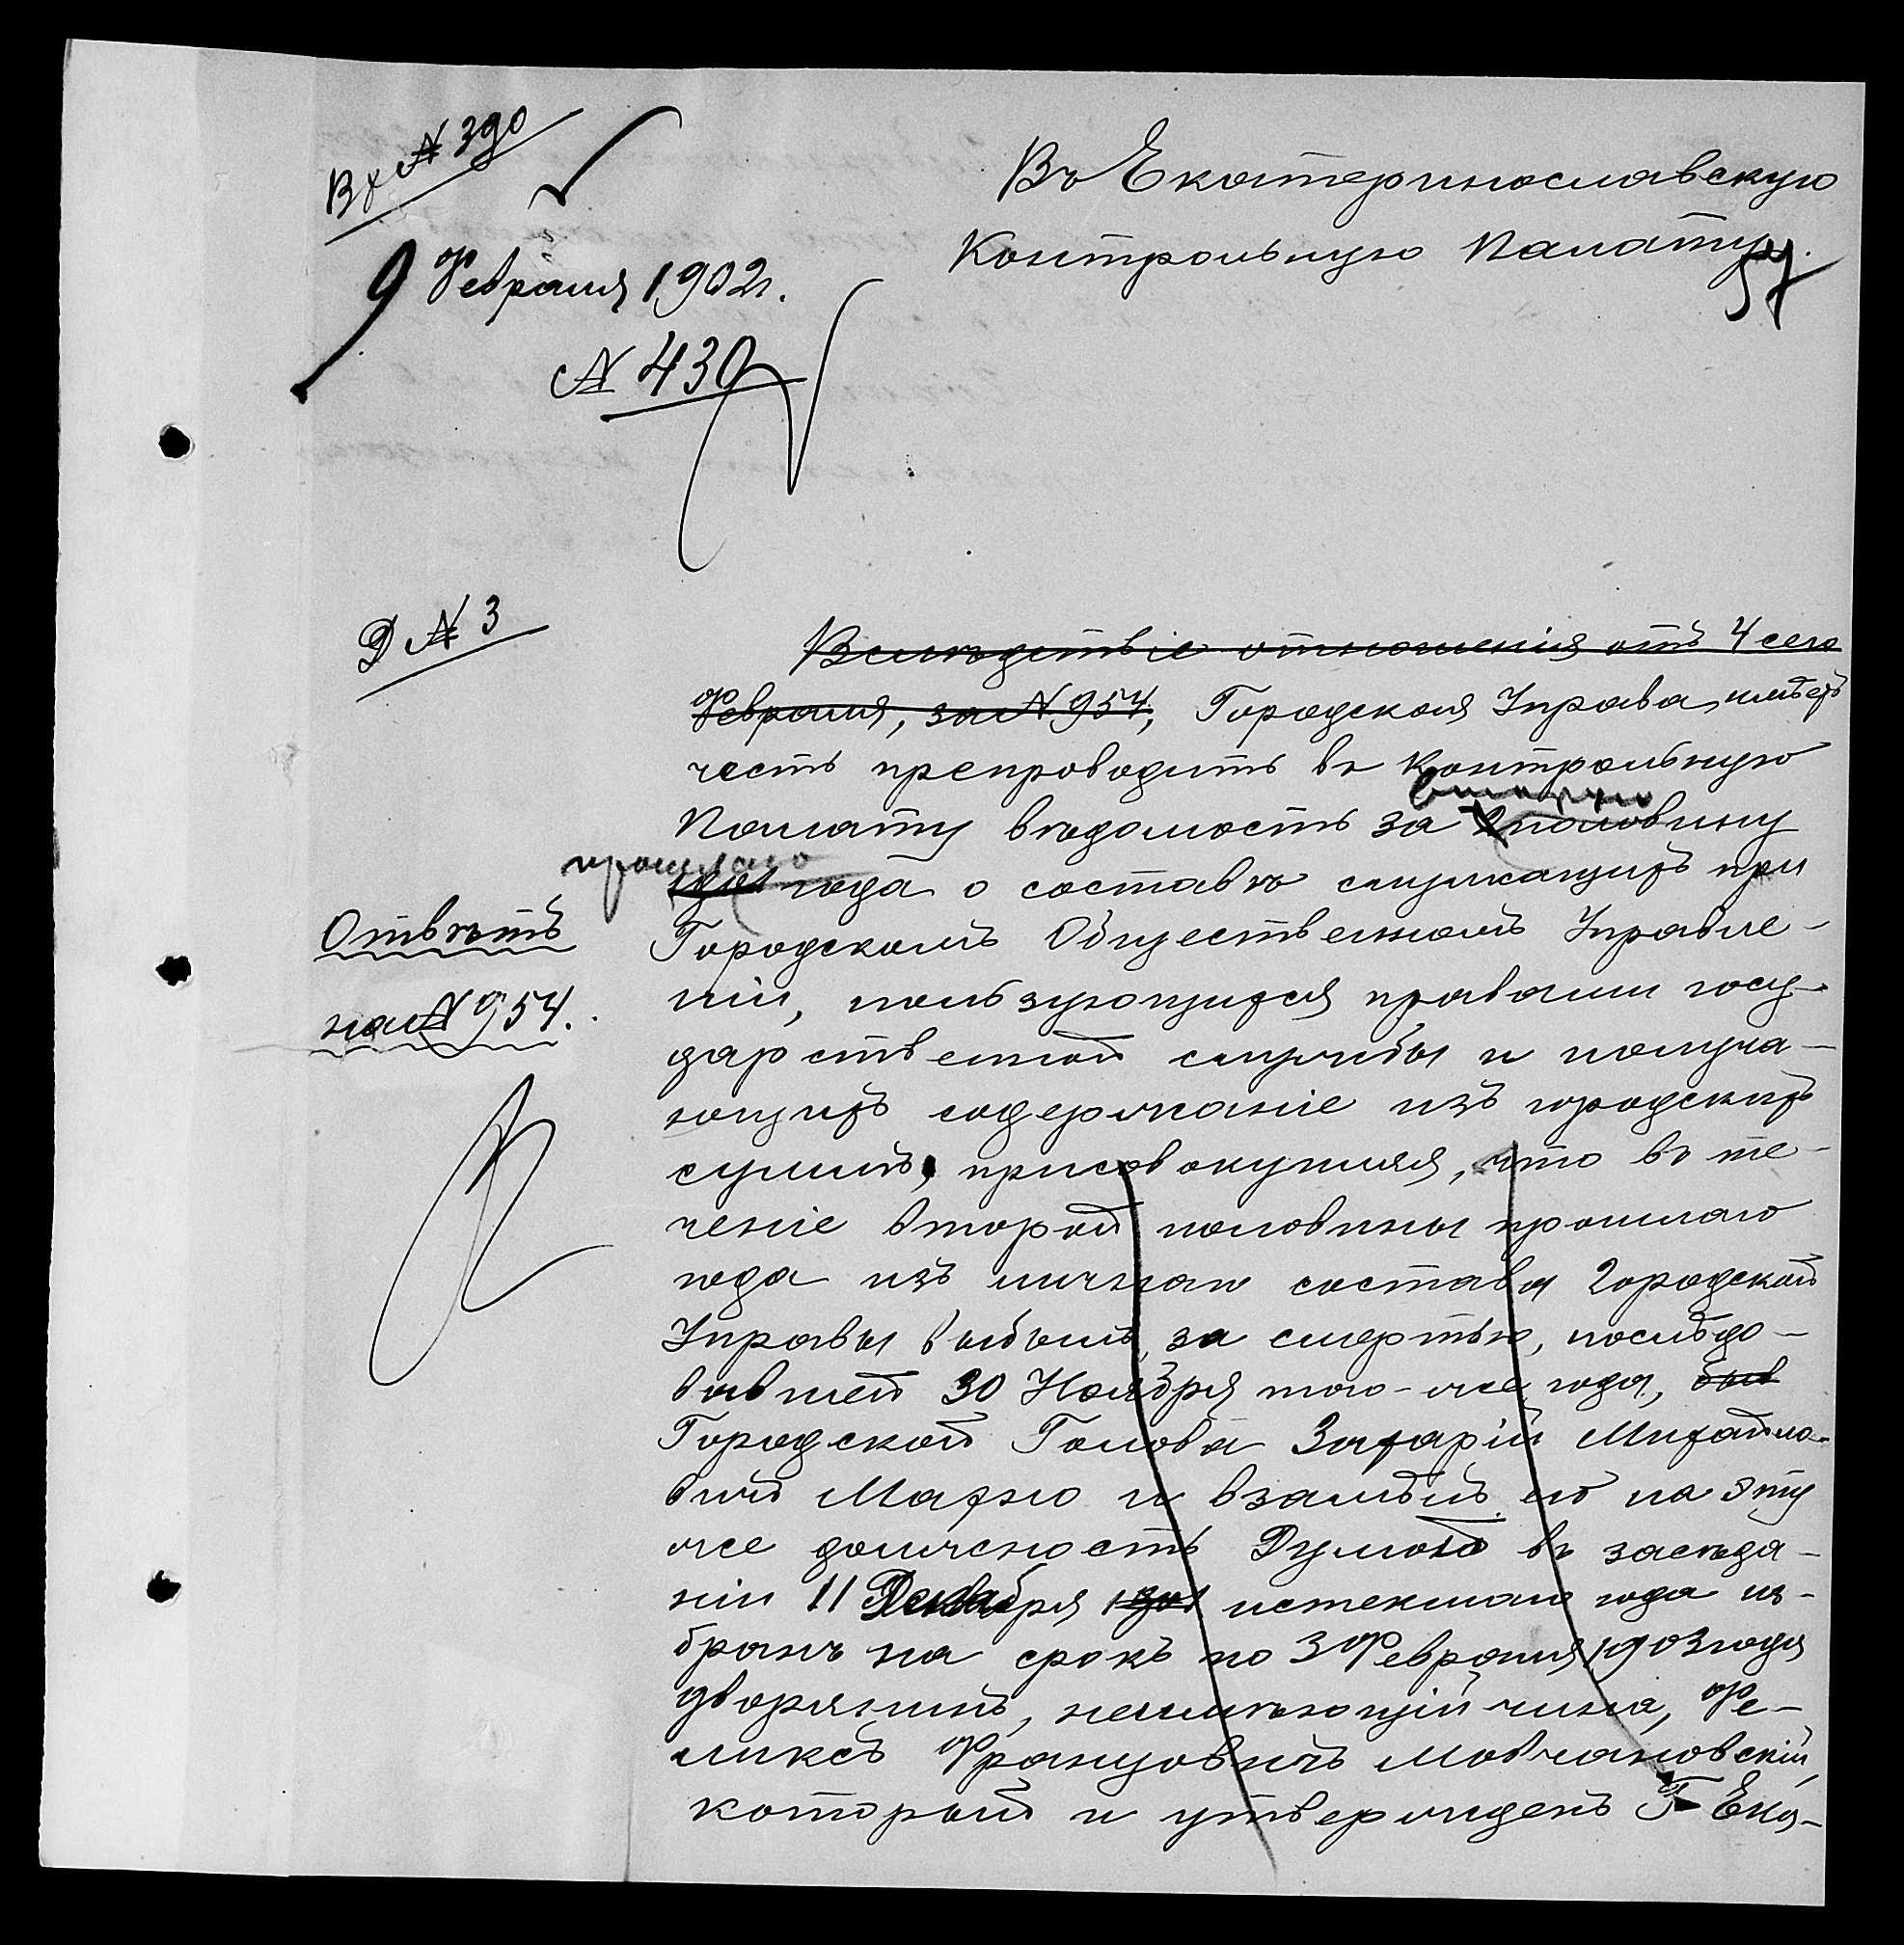 Вх № 390
Въ Екатеринославскую
Контрольную Палату.
57
9 Февраля 1902 г.
№ 430
Д № 3
Вслѣдствіе отношенія отъ 4 сего
Февраля, за № 954, Городская Управа имѣетъ
честь препроводить въ Контрольную
вторую
Палату вѣдомость за половину
прошлаго
1901 года о составѣ служащихъ при
Отвѣтъ
Городскомъ Общественномъ Управле-
на № 954.
ніи, пользующихся правами госу-
дарственной службы и получа-
ющихъ содержаніе изъ городскихъ
суммъ, присовокупляя, что въ те-
ченіе второй половины прошлаго
года изъ личнаго состава Городской
Управы выбылъ, за смертью, послѣдо-
вавшей 30 Ноября того-же года, быв
Городской Голова Захарій Михайло-
вичъ Махно и взамѣнъ его на эту
же должность Думою въ засѣда-
ніи 11 Декабря 1901 истекшаго года из-
бранъ на срокъ по 3 Февраля 1903 года
дворянинъ, неимѣющій чина, Фе-
ликсъ Францовичъ Мовчановскій,
который и утвержденъ Г. Ека-